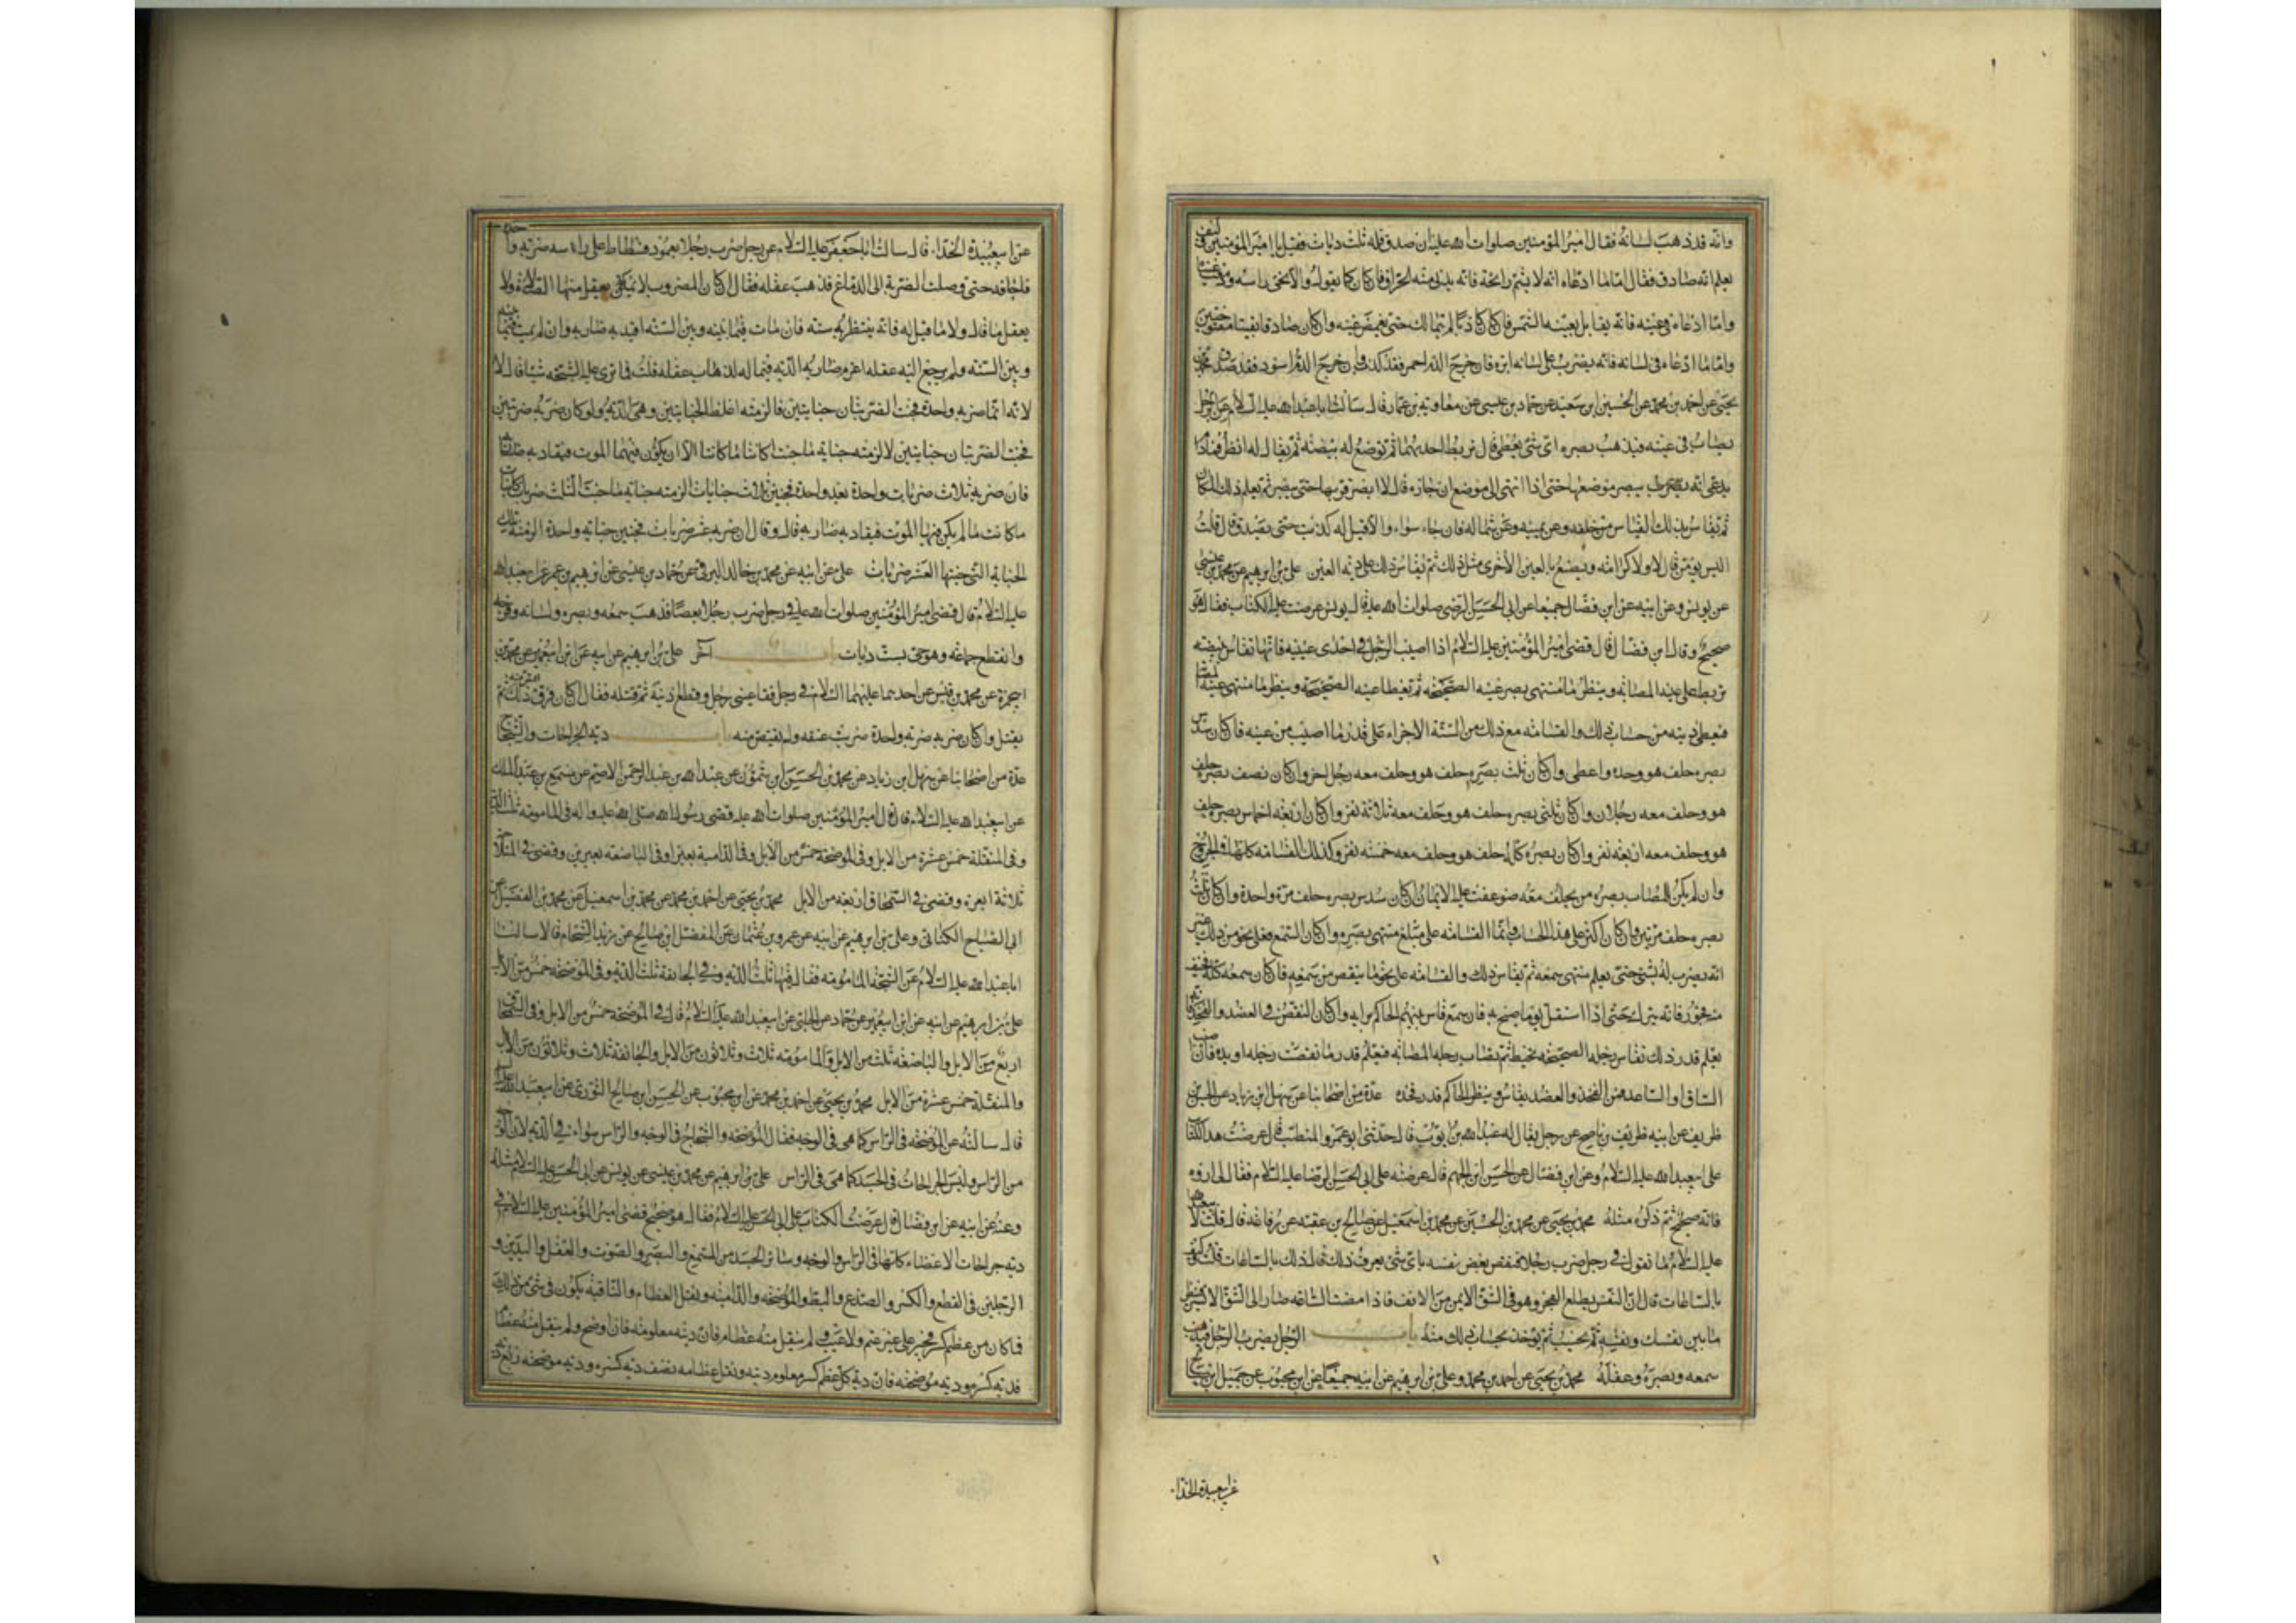 وانه قد ذهب لسانه فقال امير المؤمنين صلوات الله عليه ان صدق فله ثلث ديات فقيل يا امير المؤمنين
يعلم انه صادق فقال اما ما ادعاه انه لا يشم رائحة فانه يدنى منه الحراق فان كان كما يقول والا نحى راسه
واما ما ادعاه في عينه فانه يقابل بعينه الشمس فان كان كاذبا لم يتمالك حتى يغمض عينه وان كان صادقا بقيتا مفتوحتين
واما ما ادعاه في لسانه فانه يضرب على لسانه ابرة فان خرج الدم احمر فقد كذب وان خرج الدم اسود فقد صدق محمد بن
يحيى عن احمد بن محمد عن الحسين ابن سعيد عن حماد بن عيسى عن معاوية بن عمار قال سالت ابا عبد الله عليه السلام عن الرجل
يصاب في عينه فيذهب بصره اي شئ يعطى قال تربط احديهما ثم توضع له بيضة ثم يقال له انظر فما دام
يدعي انه يبصر موضعها حتى اذا انتهى الى موضع ان جازه قال لا ابصر قربها حتى يبصر ثم يعلم ذلك المكان
ثم يقاس بذلك القياس من خلفه وعن يمينه وعن شماله فان جاء سواء والا قيل له كذبت حتى يصدق قال قلت
اليس يؤمن قال لا ولا كرامة ويصنع بالعين الاخرى مثل ذلك ثم يقاس ذلك على دية العين على بن ابرهيم عن محمد بن عيسى
عن يونس وعن ابيه عن ابن فضال جميعا عن ابي الحسن الرضي صلوات الله عليه قال يونس عرضت عليه الكتاب فقال هو
صحيح وقال ابن فضال قال قضى امير المؤمنين عليه السلام اذا اصيب الرجل في احدى عينيه فانها تقاس ببيضة
تربط على عينه المصابة وينظر ما منتهى بصر عينه الصحيحة ثم تغطا عينه الصحيحة وينظر ما منتهى عينه المصابة
فيعطى ديته من حساب ذلك والقسامة مع ذلك من الستة الاجزاء على قدر ما اصيب من عينه فان كان سدس
بصره حلف هو وحده واعطى وان كان ثلث بصره حلف هو وحلف معه رجل اخر وان كان نصف بصره حلف
هو وحلف معه رجلان وان كان ثلثي بصره حلف هو وحلف معه ثلاثة نفر وان كان اربعة اخماس بصره حلف
هو وحلف معه اربعة نفر وان كان بصره كله حلف هو وحلف معه خمسة نفر وكذلك القسامة كلها في الجروح
وان لم يكن للمصاب بصره من يحلف معه ضوعفت عليه الايمان ان كان سدس بصره حلف مرة واحدة وان كان ثلث
بصره حلف مرتين وان كان اكثر على هذا الحساب وانما القسامة على مبلغ منتهى بصره وان كان السمع فعلى نحو من ذلك غير
انه يضرب له بشئ حتى يعلم منتهى سمعه ثم يقاس ذلك والقسامة على نحو ما ينقص من سمعه فان كان سمعه كله فخيف
منه فجور فانه يترك حتى اذا استقل نوما صيح به فان سمع قاس بينهم الحاكم برايه وان كان النقص في العضد والفخذ فانه
يعلم قدر ذلك تقاس رجله الصحيحة بخيط ثم تقاس رجله المصابة فيعلم قدر ما نقصت رجله او يده فان اصيب
الساق او الساعد فمن الفخذ والعضد يقاس وينظر الحاكم قدر فخذه عدة من اصحابنا عن سهل ابن زياد عن الحسن بن
ظريف عن ابيه ظريف بن ناصح عن رجل يقال له عبد الله بن ايوب قال حدثنى ابو عمرو المتطبب قال عرضت هذا الكتاب
على ابي عبد الله عليه السلام وعن ابن فضال عن الحسن ابن الجهم قال عرضته على ابي الحسن الرضا عليه السلام فقال لي اروه
فانه صحيح ثم ذكر مثله محمد بن يحيى عن محمد بن الحسين عن محمد بن اسمعيل عن صالح بن عقبة عن رفاعة قال قلت لابي عبد الله
عليه السلام ما تقول في رجل ضرب رجلا فنقص بعض نفسه باى شئ يعرف ذلك قال ذلك بالساعات قلت وكيف
بالساعات قال ان النفس يطلع الفجر وهو في الشق الايمن من الانف فاذا مضت الساعة صار الى الشق الايسر فتنظر
ما بين نفسك ونفسه ثم يحسب ثم يؤخذ بحساب ذلك منه باب الرجل يضرب الرجل فيذهب
سمعه وبصره وعقله محمد بن يحيى عن احمد بن محمد وعلى بن ابرهيم عن ابيه جميعا عن ابن محبوب عن جميل ابن صالح
عن ابي عبيدة الحذاء
عن ابي عبيدة الحذاء قال سالت ابا جعفر عليه السلام عن رجل ضرب رجلا بعمود فسطاط على راسه ضربة واحدة
فاجافه حتى وصلت الضربة الى الدماغ فذهب عقله فقال ان كان المضروب لا يعقل منها الصلوة ولا
يعقل ما قال ولا ما قيل له فانه ينتظر به سنة فان مات فيما بينه وبين السنة اقيد به ضاربه وان لم يمت فيما بينه
وبين السنة ولم يرجع اليه عقله اغرم ضاربه الدية فيما له لذهاب عقله قلت فما ترى عليه في الشجة شيئا قال لا
لانه انما ضربه واحدة فجنت الضربة جنايتين فالزمته اغلظ الجنايتين وهى الدية ولو كان ضربه ضربتين
فجنت الضربتان جنايتين لالزمته جناية ما جنتا كائنا ما كانتا الا ان يكون فيهما الموت فيقاد به ضاربه
فان ضربه ثلاث ضربات واحدة بعد واحدة فجنين ثلاث جنايات الزمته جناية ما جنت الثلث ضربات كائنات
ما كانت ما لم يكن فيها الموت فيقاد به ضاربه قال وقال ان ضربه عشر ضربات فجنين جناية واحدة الزمته تلك
الجناية التي جنتها العشر ضربات على عن ابيه عن محمد بن خالد البرقي عن حماد بن عيسى عن ابرهيم بن عمر عن ابي عبد الله
عليه السلام قال قضى امير المؤمنين صلوات الله عليه في رجل ضرب رجلا بعصا فذهب سمعه وبصره ولسانه وفرجه
وانقطع جماعه وهو حى بست ديات باب آخر على بن ابرهيم عن ابيه عن ابن ابي عمير عن محمد بن
ابي حمزة عن محمد بن قيس عن احدهما عليهما السلام في رجل فقا عيني رجل وقطع اذنيه ثم قتله فقال ان كان فرق ذلك اقتص منه ثم
يقتل وان كان ضربه ضربة واحدة ضربت عنقه ولم يقتص منه باب دية الجراحات والشجاج
عدة من اصحابنا عن سهل ابن زياد عن محمد بن الحسن ابن شمون عن عبد الله بن عبد الرحمن الاصم عن مسمع بن عبد الملك
عن ابي عبد الله عليه السلام قال قال امير المؤمنين صلوات الله عليه قضى رسول الله صلى الله عليه واله في المامومة ثلث الدية
وفي المنقلة خمس عشرة من الابل وفي الموضحة خمس من الابل وفي الدامية بعيرا وفي الباضعة بعيرين وقضى في المتلاحمة
ثلاثة ابعرة وقضى في السمحاق اربعة من الابل محمد بن يحيى عن احمد بن محمد عن محمد بن اسمعيل عن محمد بن الفضيل عن
ابي الصباح الكناني وعلى بن ابرهيم عن ابيه عن عمرو بن عثمان عن المفضل ابن صالح عن زيد الشحام قالا سالنا
ابا عبد الله عليه السلام عن الشجة المامومة فقال فيها ثلث الدية وفي الجائفة ثلث الدية وفي الموضحة خمس من الابل
على بن ابرهيم عن ابيه عن ابن ابي عمير عن حماد عن الحلبي عن ابي عبد الله عليه السلام قال في الموضحة خمس من الابل وفي السمحاق
اربع من الابل والباضعة ثلث من الابل والمامومة ثلاث وثلاثون من الابل والجائفة ثلاث وثلاثون من الابل
والمنقلة خمس عشرة من الابل محمد بن يحيى عن احمد بن محمد عن ابن محبوب عن الحسن ابن صالح الثوري عن ابي عبد الله عليه السلام
قال سالته عن الموضحة في الراس كما هي في الوجه فقال الموضحة والشجاج في الوجه والراس سواء في الدية لان الوجه
من الراس وليس الجراحات في الجسد كما هي في الراس على بن ابرهيم عن محمد بن عيسى عن يونس عن ابي الحسن عليه السلام مثله
وعنه عن ابيه عن ابن فضال قال عرضت الكتاب على ابي الحسن عليه السلام فقال هو صحيح قضى امير المؤمنين عليه السلام في
دية جراحات الاعضاء كلها في الراس والوجه وسائر الجسد من السمع والبصر والصوت والعقل واليدين و
الرجلين في القطع والكسر والصدع والبط والموضحة والدامية ونقل العظام والناقبة يكون في شئ من ذلك
فما كان من عظم كسر فجبر على غير عثم ولا عيب لم ينقل منه عظام فان ديته معلومة فان اوضح ولم ينقل منه عظام
فدية كسره ودية موضحته فان دية كل عظم كسر معلوم ديته ونقل عظامه نصف دية كسره ودية موضحته ربع دية